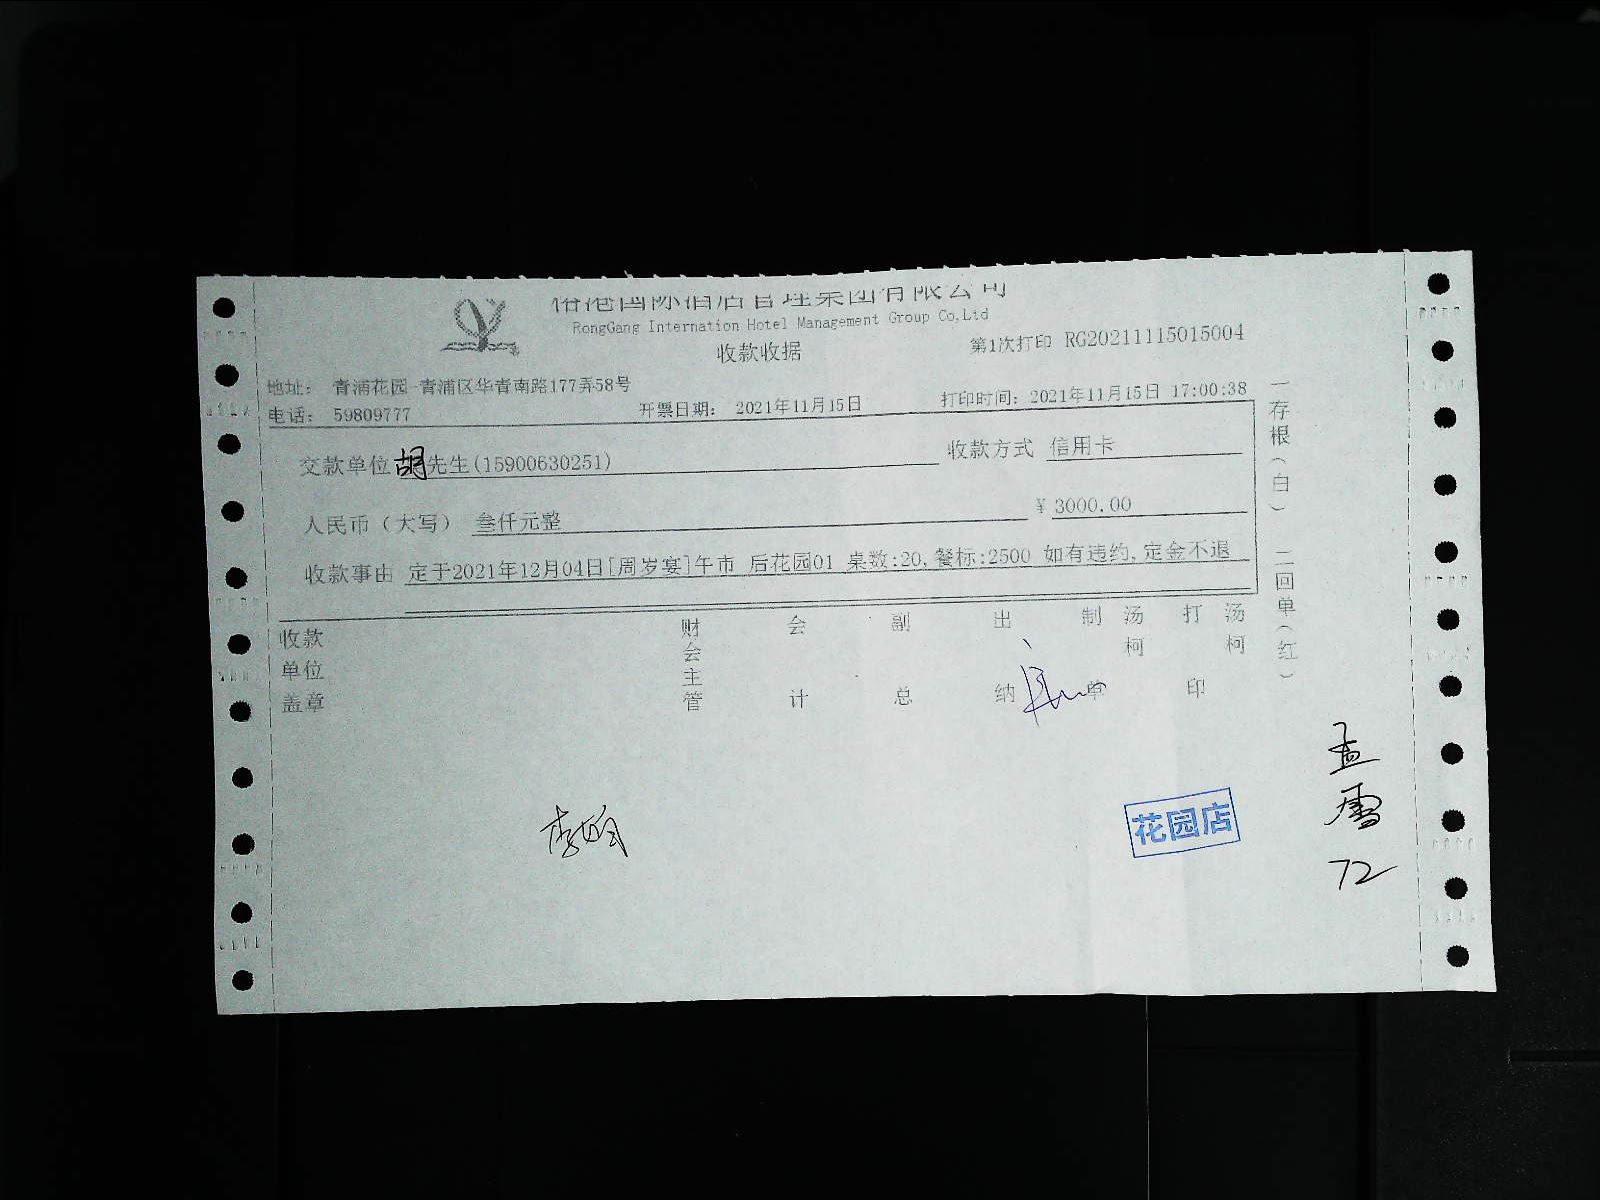 国际酒店管理集团有限公司
RongGang Internation Hotel Management Group Co,Ltd
收款收据
第1次打印 RG20211115015004
地址： 青浦花园-青浦区华青南路177弄58号
电话： 59809777
开票日期： 2021年11月15日
打印时间：2021年11月15日 17:00:38
交款单位 胡先生(15900630251)
收款方式 信用卡
人民币（大写） 叁仟元整
￥3000.00
收款事由 定于2021年12月04日[周岁宴]午市 后花园01 桌数:20,餐标:2500 如有违约,定金不退
收款单位盖章
财会主管
会计
副总
出纳
制单
汤柯
打印
汤柯
一存根（白） 二回单（红）
花园店
孟雪
72